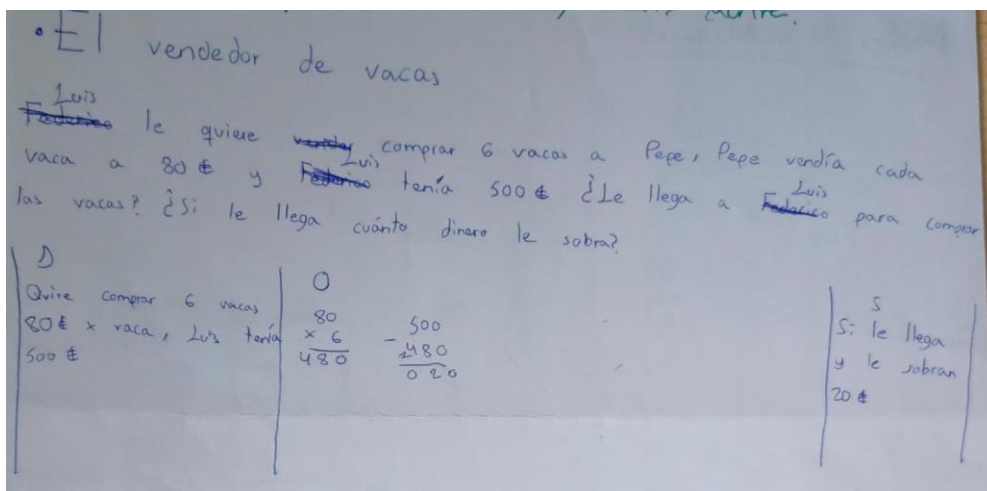 •El vendedor de vacas
Luis
le quiere comprar 6 vacas a Pepe, Pepe vendía cada
Luis
vaca a 80 € y tenía 500 € ¿Le llega a Luis para comprar
las vacas? ¿Si le llega cuánto dinero le sobra?
D
Quire comprar 6 vacas
80€ x vaca, Luis tenía
500 €
O
80
x 6
480
500
- 480
020
S
Si le llega
y le sobran
20 €